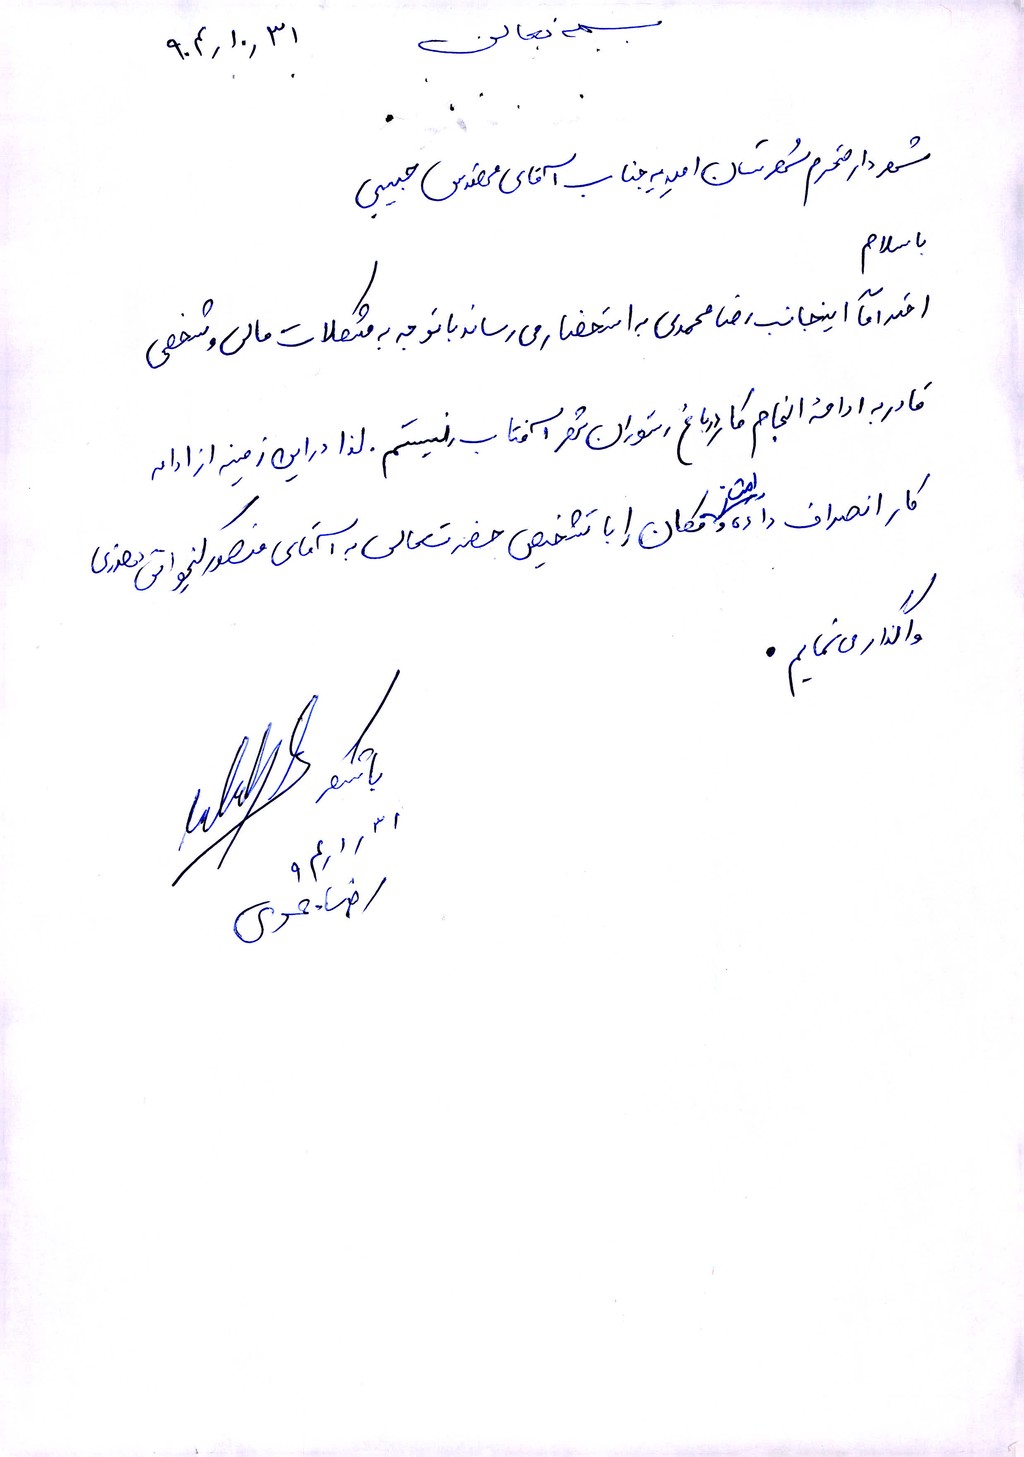 بسمه تعالی
۹۰۴/۱۰/۳۱
شهردار محترم شهرستان امیدیه جناب آقای مهندس حبیبی
با سلام
احتراماً اینجانب رضا محمدی به استحضار می رساند با توجه به مشکلات مالی و شخصی
قادر به ادامهٔ انجام کار در باغ رستوران شهر آفتاب نیستم . لذا در این زمینه از ادامه
کار انصراف داده و امتیاز مکان را با تشخیص حضرتعالی به آقای منصور
واگذار می نمایم .
با تشکر
۹۴/۱۰/۳۱
رضا محمدی